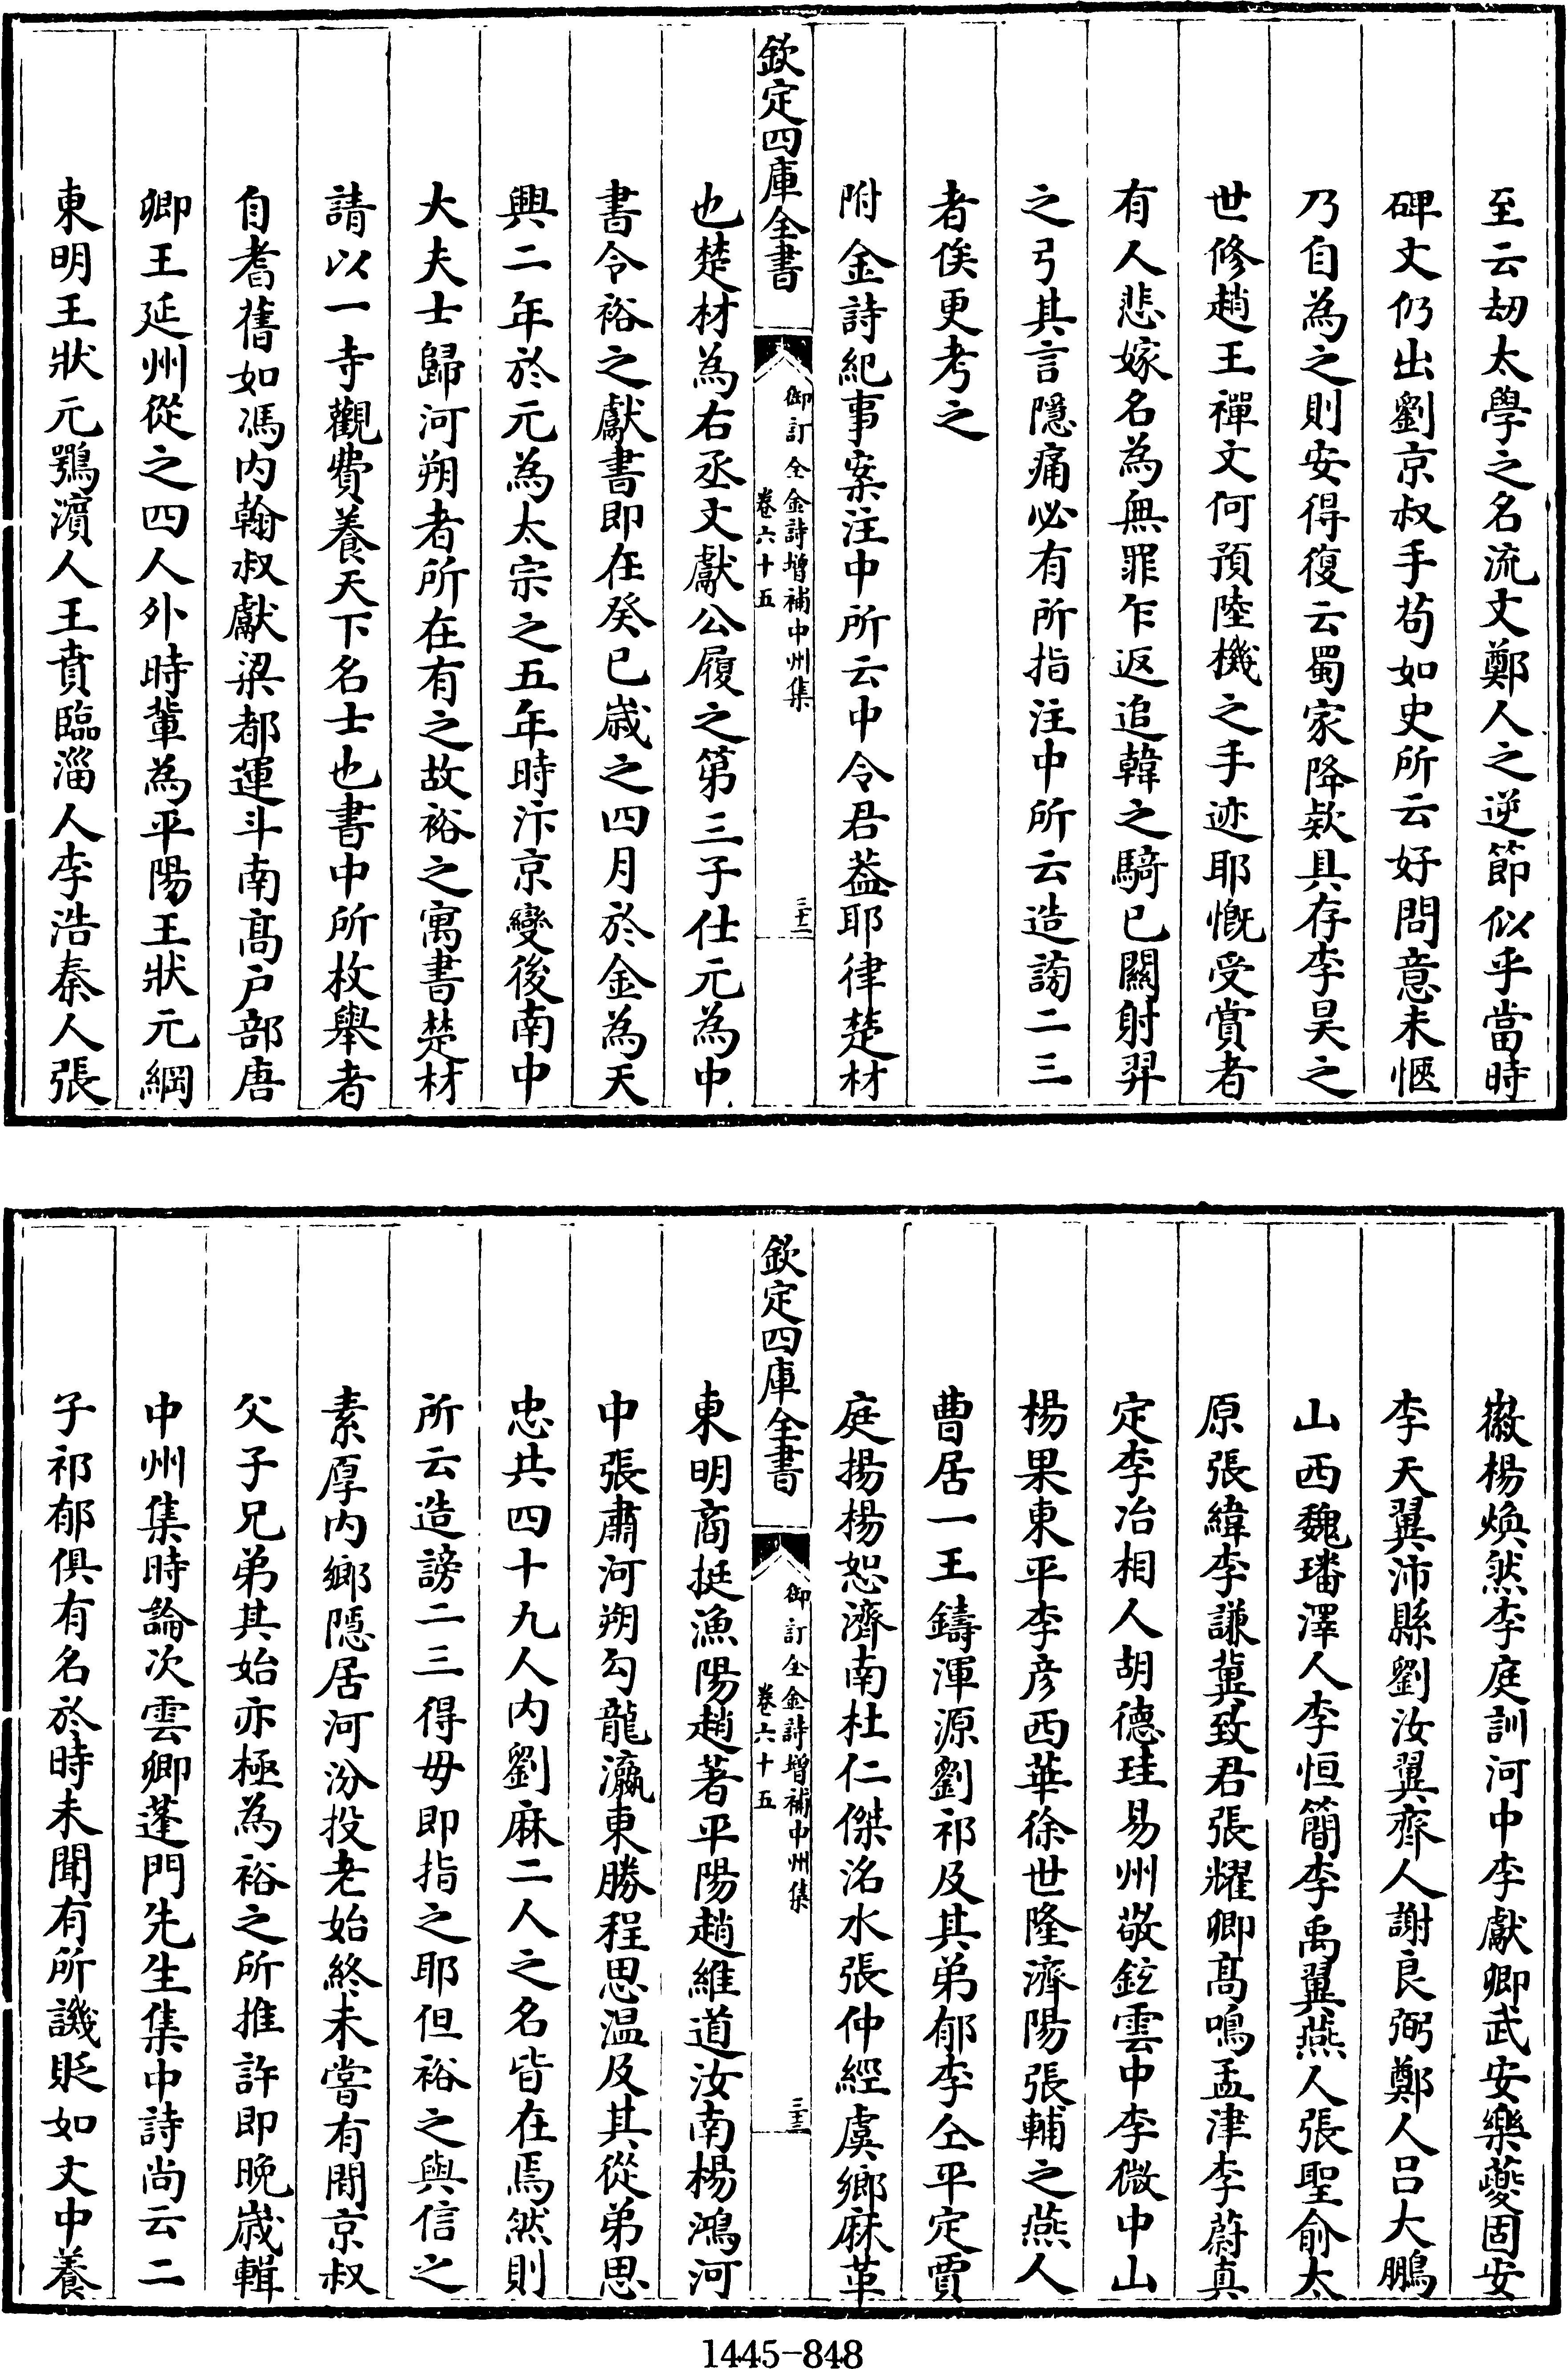 至云刼太學之名流文鄭人之逆節似乎當時
碑文仍出劉京叔手茍如史所云好問意未愜
乃自為之則安得復云蜀家降款具存李昊之
世修趙王禪文何預陸機之手迹耶慨受賞者
有人悲嫁名為無罪乍返追韓之騎已關射羿
之弓其言隱痛必有所指注中所云造謗二三
者俟更考之
附金詩紀事案注中所云中令君葢耶律楚材
欽定四庫全書
御訂全金詩增補中州集
卷六十五
三十二
也楚材為右丞文獻公履之第三子仕元為中
書令裕之獻書即在癸巳歲之四月於金為天
興二年於元為太宗之五年時汴京變後南中
大夫士歸河朔者所在有之故裕之寓書楚材
請以一寺觀費養天下名士也書中所枚舉者
自耆舊如馮内翰叔獻梁都運斗南髙户部唐
卿王延州從之四人外時輩為平陽王狀元綱
東明王狀元鶚濵人王賁臨淄人李浩秦人張
徽楊煥然李庭訓河中李獻卿武安樂夔固安
李天翼沛縣劉汝翼齊人謝良弼鄭人吕大鵬
山西魏璠澤人李恒簡李禹翼燕人張聖俞太
原張緯李謙冀致君張耀卿髙鳴孟津李蔚真
定李冶相人胡德珪易州敬鉉雲中李微中山
楊果東平李彦西華徐世隆濟陽張輔之燕人
曹居一王鑄渾源劉祁及其弟郁李仝平定賈
庭揚楊恕濟南杜仁傑洺水張仲經虞鄉麻革
欽定四庫全書
御訂全金詩增補中州集
卷六十五
三十三
東明商挺漁陽趙著平陽趙維道汝南楊鴻河
中張肅河朔勾龍瀛東勝程思温及其從弟思
忠共四十九人内劉麻二人之名皆在焉然則
所云造謗二三得毋即指之耶但裕之與信之
素厚内鄉隱居河汾投老始終未嘗有間京叔
父子兄弟其始亦極為裕之所推許即晚歲輯
中州集時論次雲卿蓬門先生集中詩尚云二
子祁郁俱有名於時未聞有所譏貶如文中養
1445-848